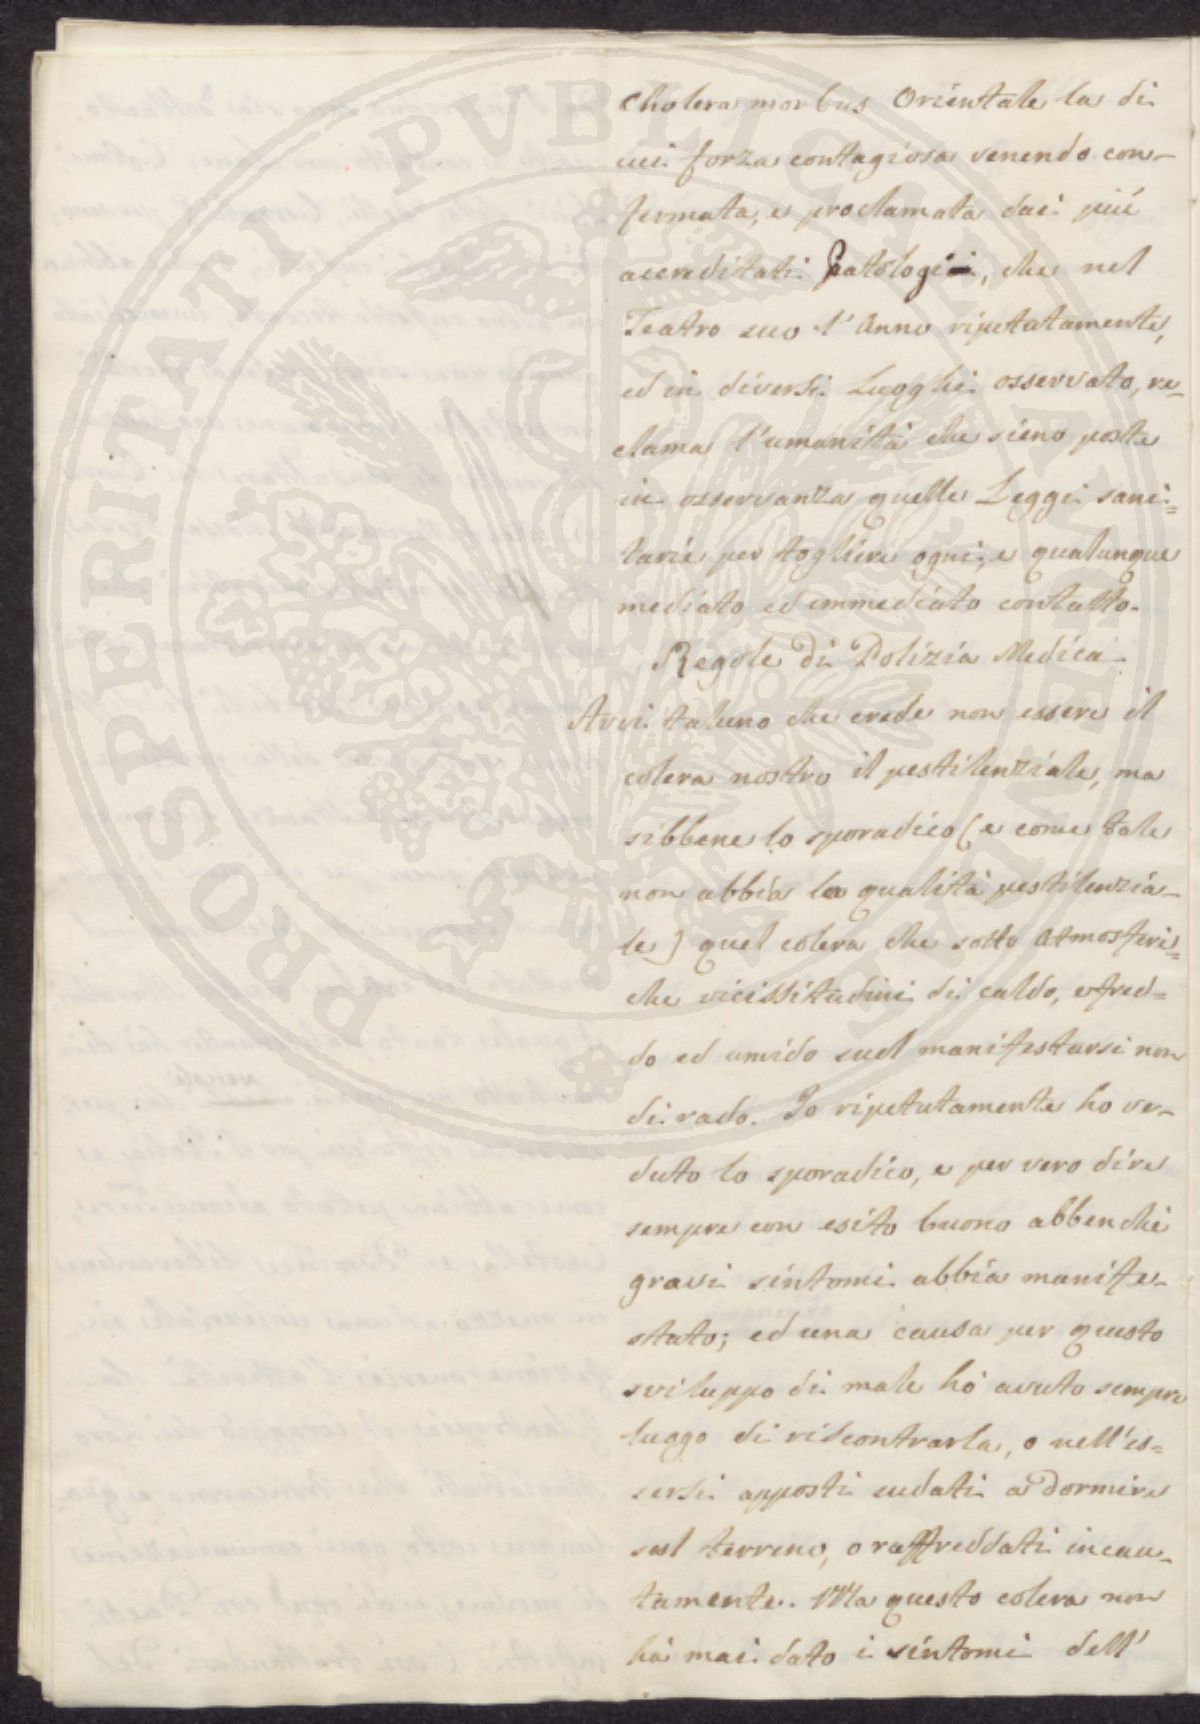 PROSPERITATI PVBLICAE AVGENDAE
Cholera morbus Orientale la di
cui forza contagiosa venendo con-
fermata, e proclamata dai più
accreditati Patologi, che nel
Teatro suo l'Anno riputatamente,
ed in diversi Luoghi osservato, re-
clama l'umanità che sieno poste
in osservanza quelle Leggi sani=
tarie per togliere ogni, e qualunque
mediato ed immediato contatto.
Regole di Polizia Medica
Avvi taluno che crede non essere il
colera nostro il pestilenziale, ma
sibbene lo sporadico (e come tale
non abbia la qualità pestilenzia-
le) quel colera che sotto atmosferi=
che vicissitudini di caldo, e fred=
do ed umido suol manifestarsi non
di rado. Io riputatamente ho ve-
duto lo sporadico, e per vero dire
sempre con esito buono abbenchè
gravi sintomi abbia manife-
stato; ed una causa per questo
sviluppo di male hò avuto sempre
luogo di riscontrarla, o nell'es=
sersi apposti sudati a dormire
sul terreno, o raffreddati incau-
tamente. Ma questo colera non
hà mai dato i sintomi dell'